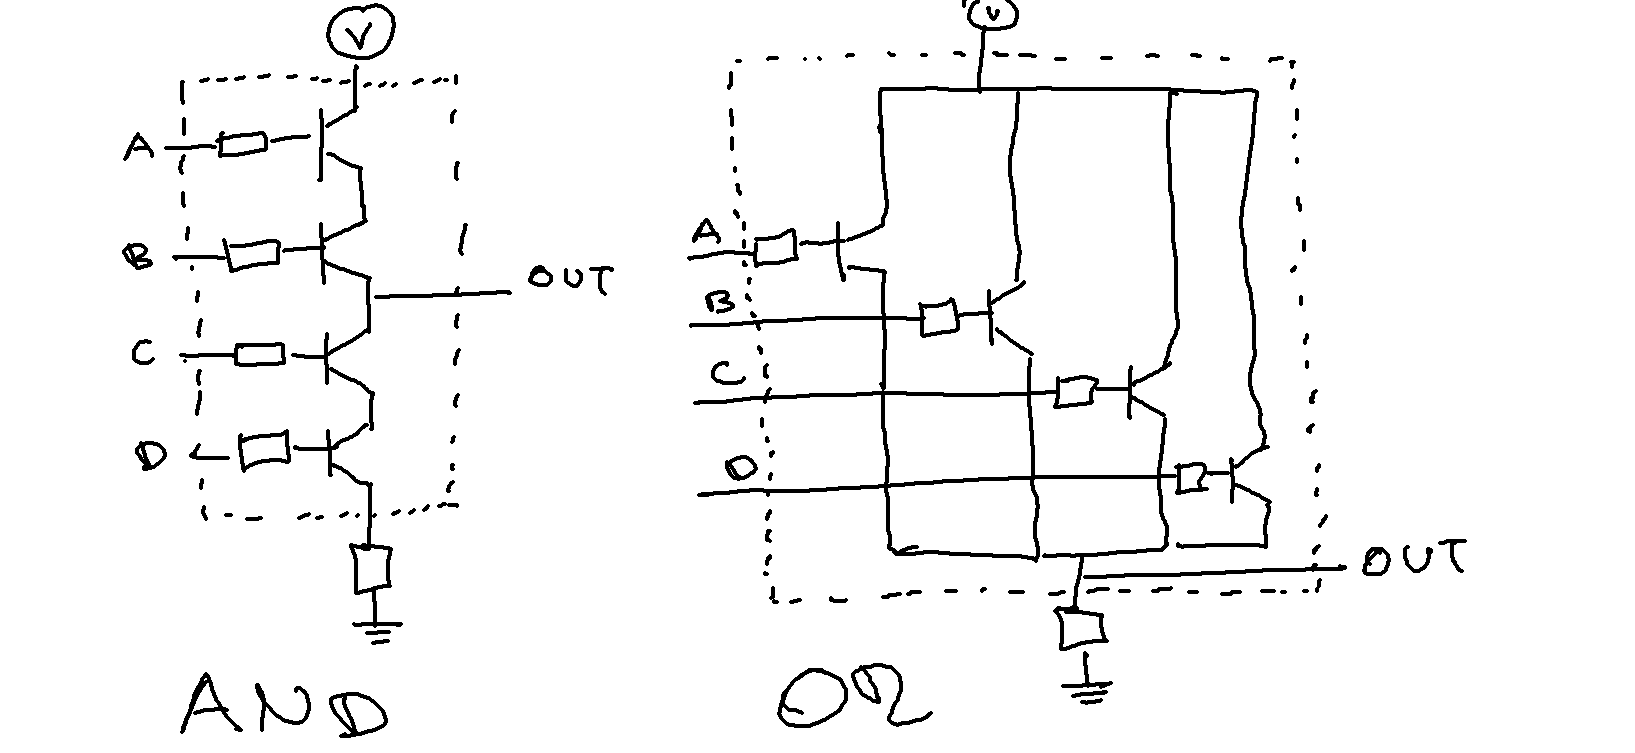 V
A
B
OUT
C
D
AND
V
A
B
C
D
OUT
OR